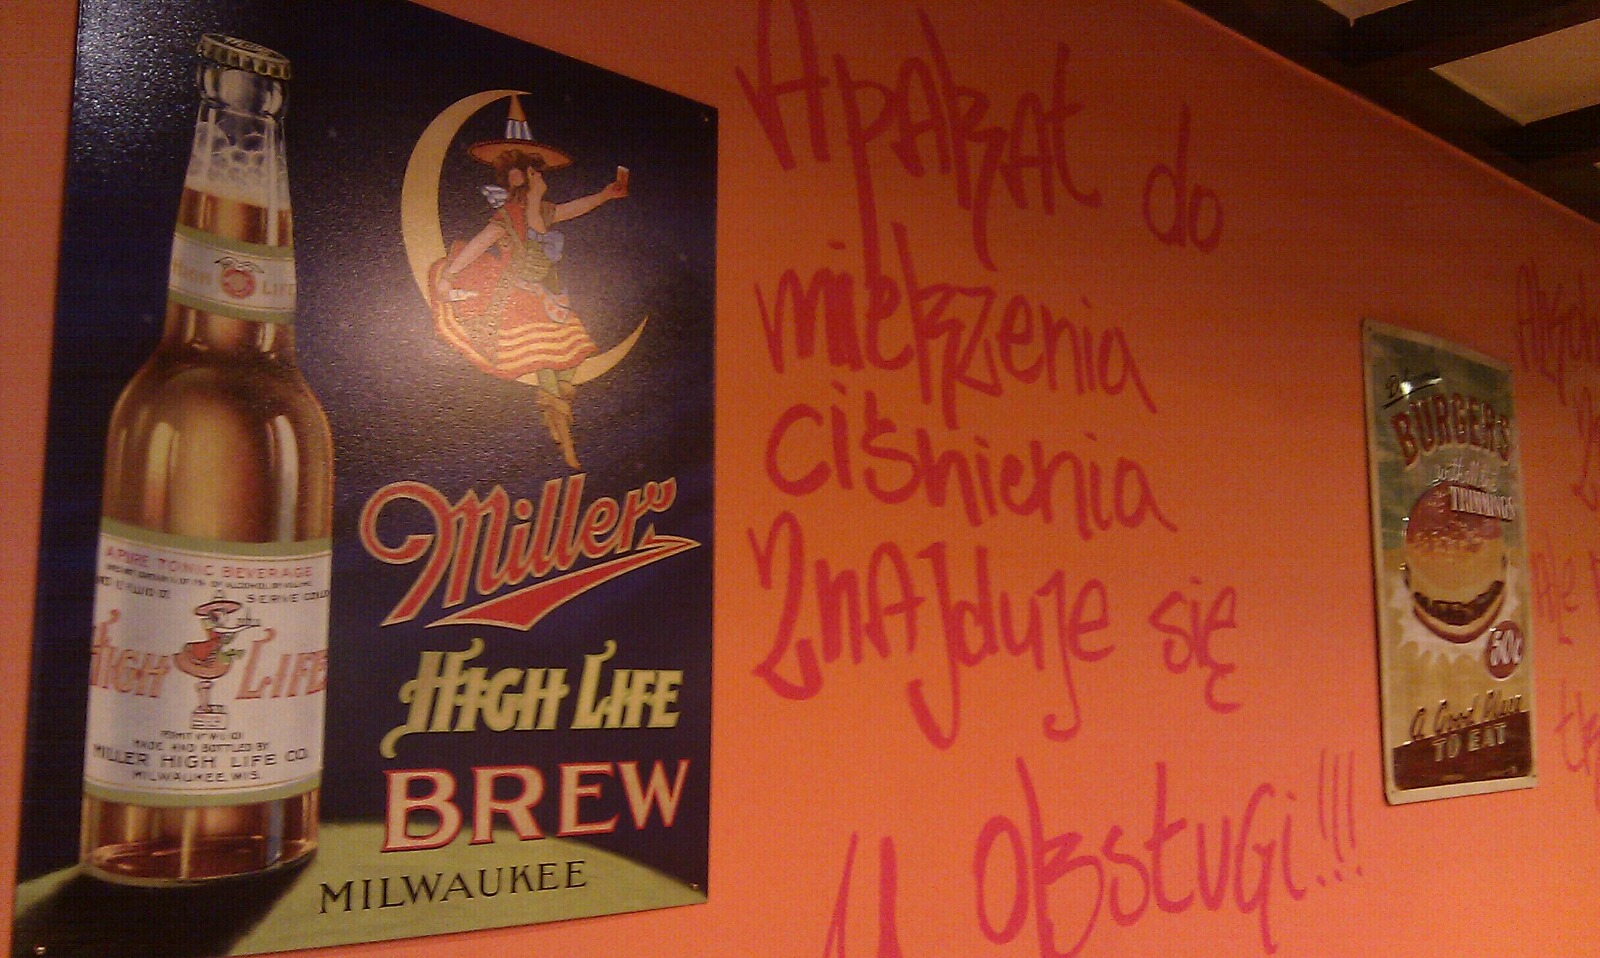 HIGH LIFE
A PURE TONIC BEVERAGE
SERVE COLD
HIGH LIFE
MADE AND BOTTLED BY
MILLER HIGH LIFE CO.
MILWAUKEE, WIS.
Miller
HIGH LIFE
BREW
MILWAUKEE
APARAt do
miekzenia
ciśnienia
ZnAjduje się
u obsługi!!!
BURGERS
with all the
TRIMMINGS
50¢
A Good Place
TO EAT